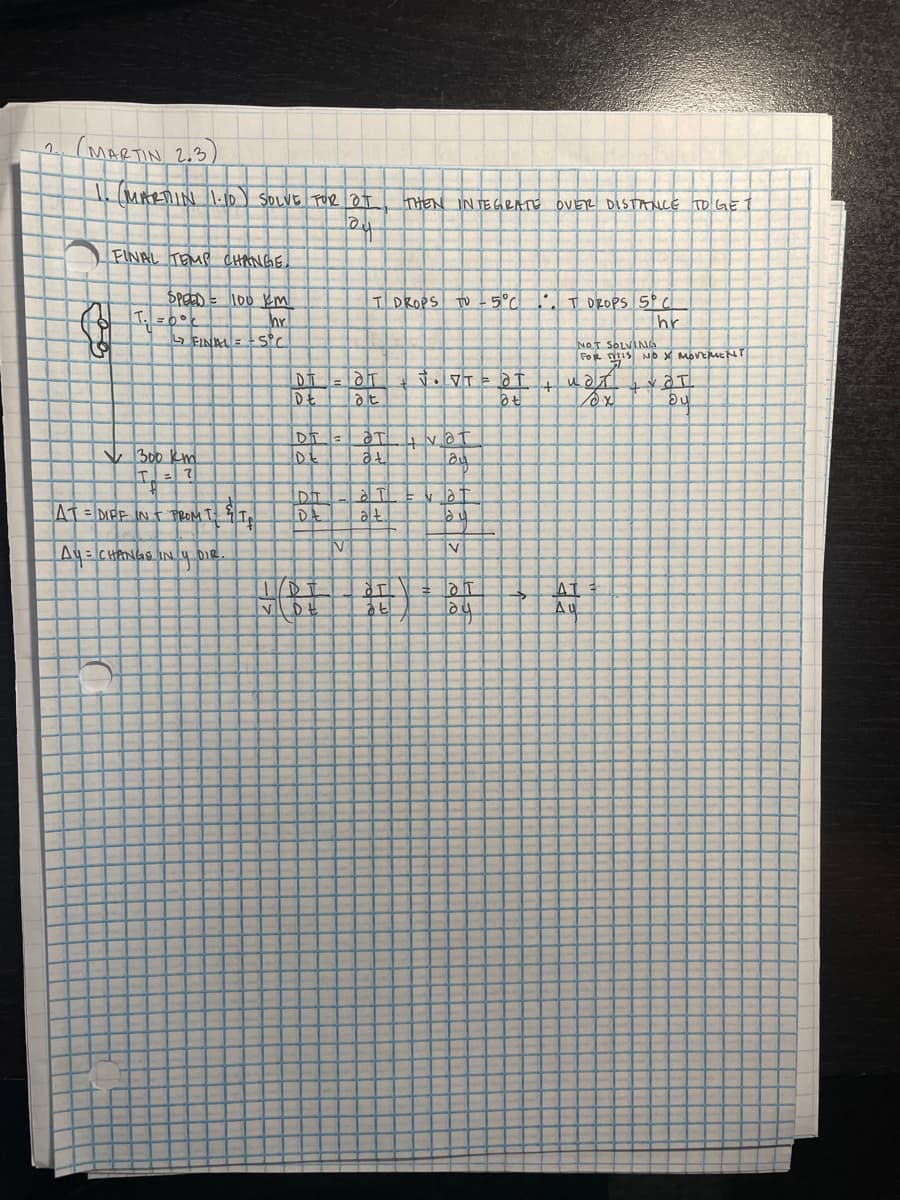 2. (MARTIN 2.3)
1. (MARTIN 1.10) SOLVE FOR ∂T/∂y, THEN INTEGRATE OVER DISTANCE TO GET
FINAL TEMP CHANGE.
SPEED = 100 km/hr
T DROPS TO -5°C ∴ T DROPS 5°C/hr
Ti = 0°C
↳ FINAL = -5°C
NOT SOLVING
FOR THIS NO X MOVEMENT
DT/Dt = ∂T/∂t + v⃗ · ∇T = ∂T/∂t + u ∂T/∂x + v ∂T/∂y
DT/Dt = ∂T/∂t + v ∂T/∂y
300 km
Tf = ?
DT/Dt - ∂T/∂t = v ∂T/∂y
ΔT = DIFF IN T FROM Ti & Tf
v v
Δy = CHANGE IN y DIR.
1/v (DT/Dt - ∂T/∂t) = ∂T/∂y → ΔT/Δy =